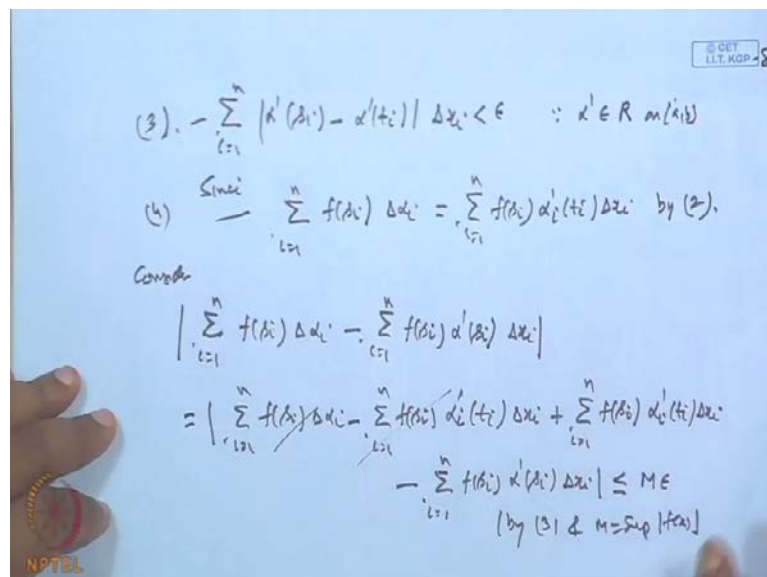 © CET
I.I.T. KGP
(3). - Σ_{i=1}^{n} |α'(si) - α'(ti)| Δxi < ε ∵ α' ∈ R on [a,b]
(4) Since — Σ_{i=1}^{n} f(si) Δαi = Σ_{i=1}^{n} f(si) αi'(ti) Δxi by (2).
Consider
| Σ_{i=1}^{n} f(si) Δαi - Σ_{i=1}^{n} f(si) α'(si) Δxi |
= | Σ_{i=1}^{n} f(si) Δαi - Σ_{i=1}^{n} f(si) αi'(ti) Δxi + Σ_{i=1}^{n} f(si) αi'(ti) Δxi
- Σ_{i=1}^{n} f(si) α'(si) Δxi | ≤ Mε
[by (3) & M = Sup |f(x)|]
NPTEL